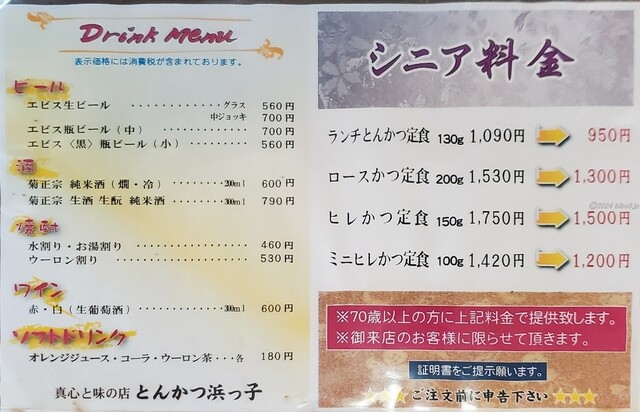 Drink Menu
表示価格には消費税が含まれております。
ビール
エビス生ビール ・・・・・・・・・・・グラス 560円
中ジョッキ 700円
エビス瓶ビール（中）・・・・・・・・・・・ 700円
エビス〈黒〉瓶ビール（小）・・・・・・・・ 560円
酒
菊正宗 純米酒（燗・冷）・・・・・・・・200ml 600円
菊正宗 生酒 生酛 純米酒 ・・・・・・・・300ml 790円
焼酎
水割り・お湯割り ・・・・・・・・・・・・ 460円
ウーロン割り ・・・・・・・・・・・・・・ 530円
ワイン
赤・白（生葡萄酒）・・・・・・・・・・・300ml 600円
ソフトドリンク
オレンジジュース・コーラ・ウーロン茶・・・各 180円
真心と味の店 とんかつ浜っ子
シニア料金
ランチとんかつ定食 130g 1,090円 950円
ロースかつ定食 200g 1,530円 1,300円
ヒレかつ定食 150g 1,750円 1,500円
ミニヒレかつ定食 100g 1,420円 1,200円
※70歳以上の方に上記料金で提供致します。
※御来店のお客様に限らせて頂きます。
証明書をご提示願います。
★★★ご注文前に申告下さい★★★